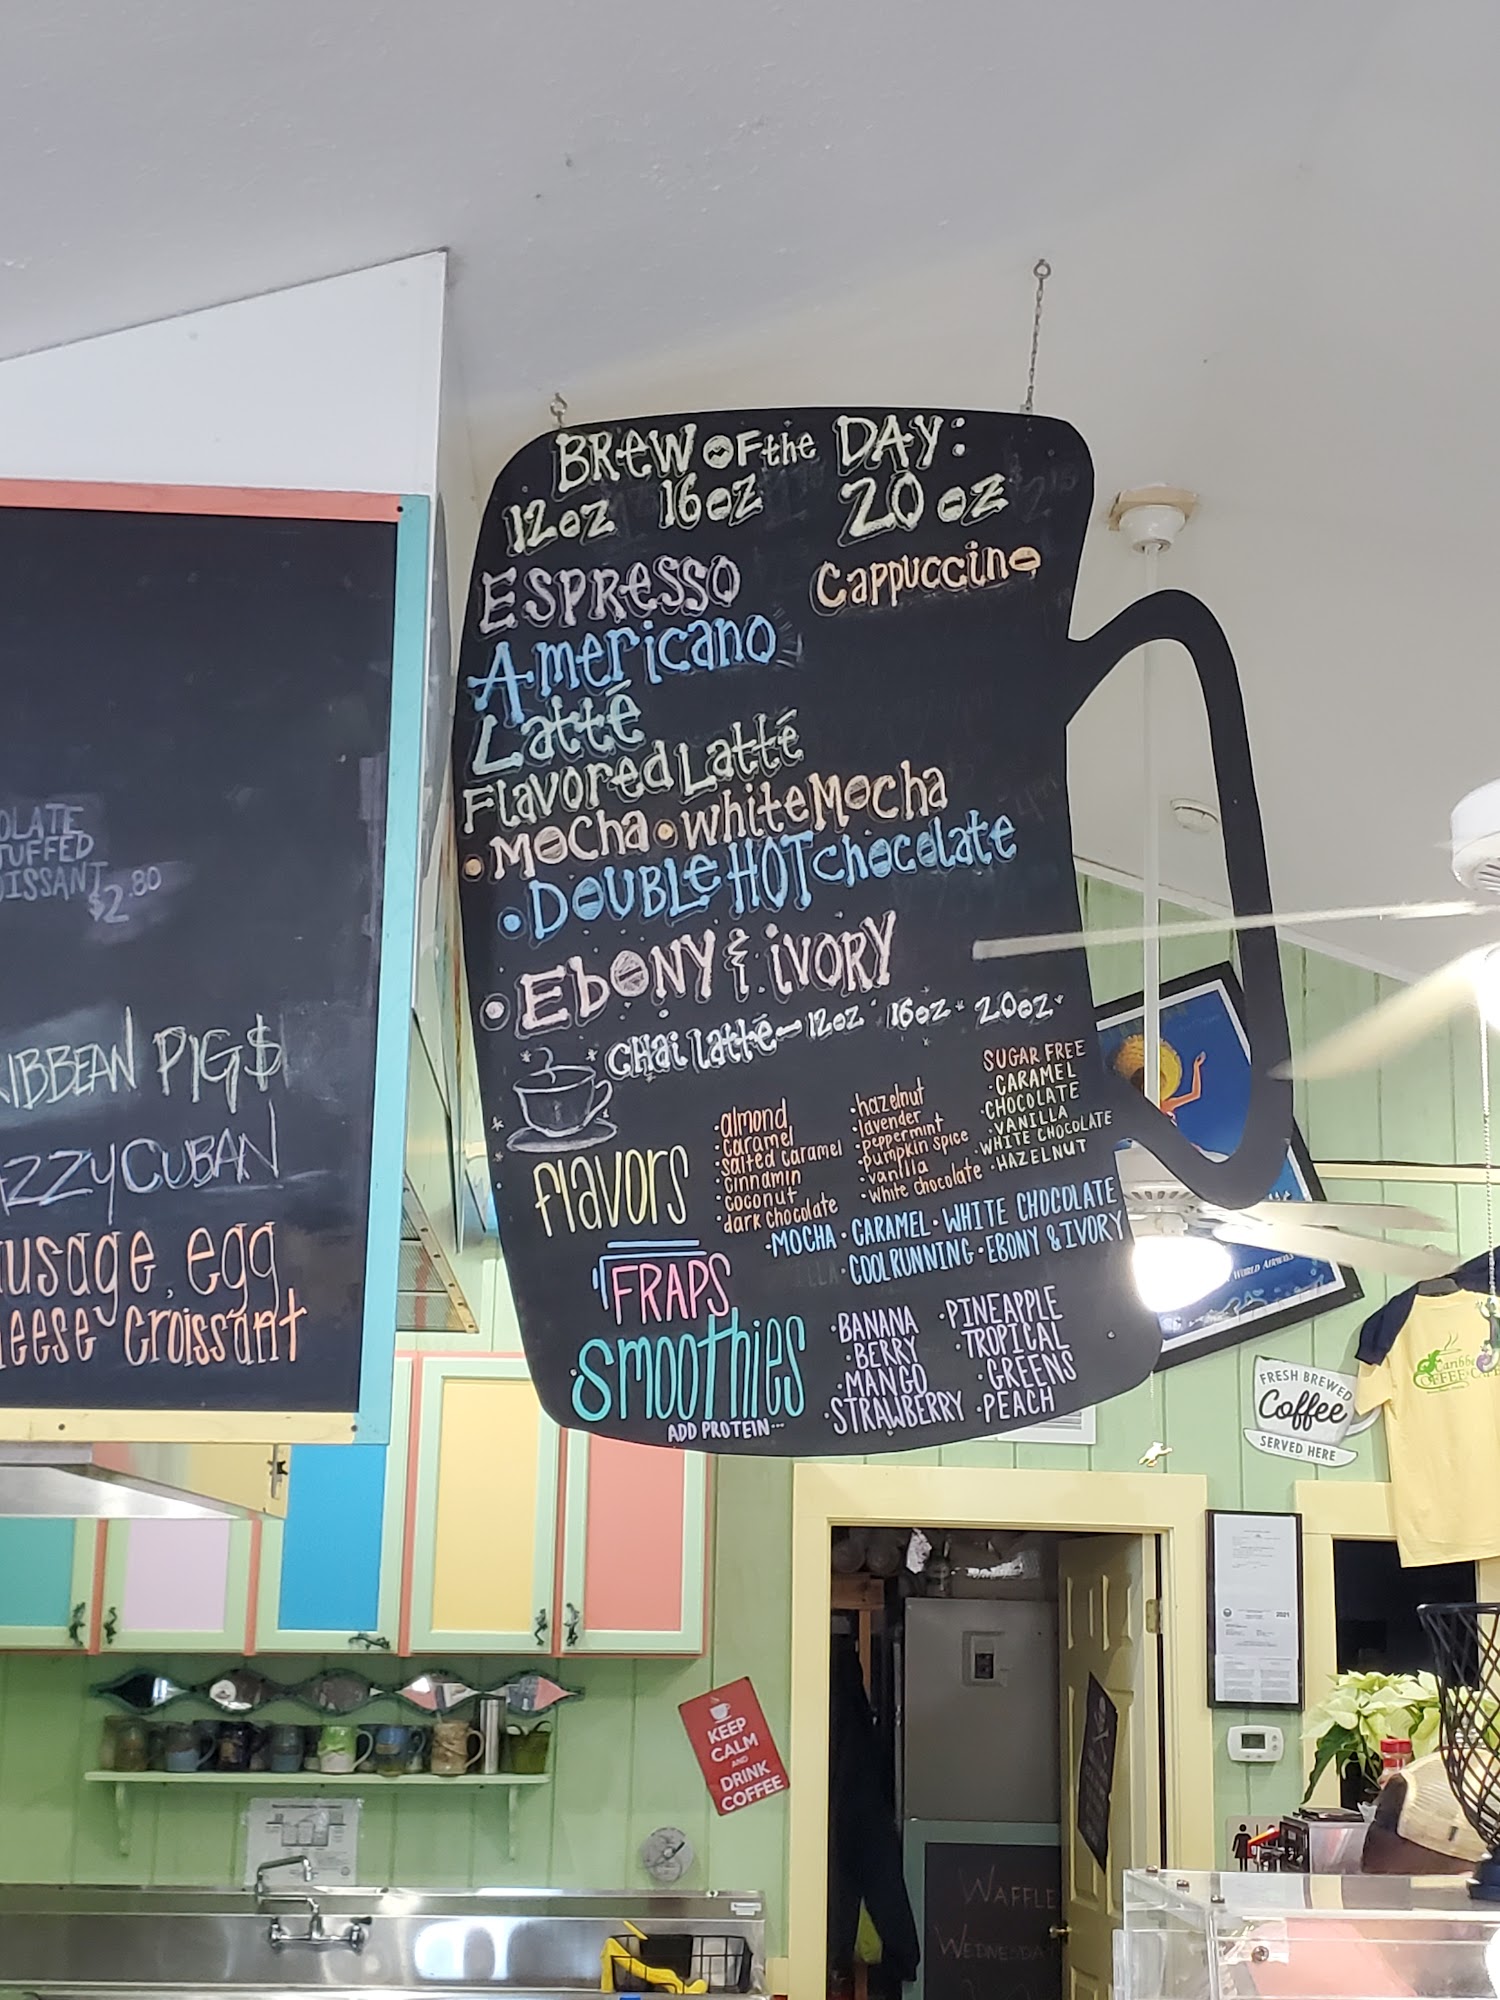 BREW OF the DAY:
12oz 16oz 20oz
ESPRESSO Cappuccino
Americano
Latté
Flavored Latté
• Mocha • white Mocha
• DOUBLE HOT chocolate
• Ebony & IVORY
CHai latté — 12oz 16oz 20oz
Flavors
• almond
• caramel
• salted caramel
• cinnamin
• coconut
• dark chocolate
• hazelnut
• lavender
• peppermint
• pumpkin spice
• vanilla
• white chocolate
SUGAR FREE
• CARAMEL
• CHOCOLATE
• VANILLA
• WHITE CHOCOLATE
• HAZELNUT
FRAPS
• MOCHA • CARAMEL • WHITE CHOCOLATE
• COOL RUNNING • EBONY & IVORY
Smoothies
ADD PROTEIN...
• BANANA
• BERRY
• MANGO
• STRAWBERRY
• PINEAPPLE
• TROPICAL
• GREENS
• PEACH
OLATE
TUFFED
OISSANT
$2.80
IBBEAN PIG$
ZZY CUBAN
usage, egg
eese croissant
FRESH BREWED
Coffee
SERVED HERE
KEEP
CALM
AND
DRINK
COFFEE
2021
WAFFLE
WEDNESDA